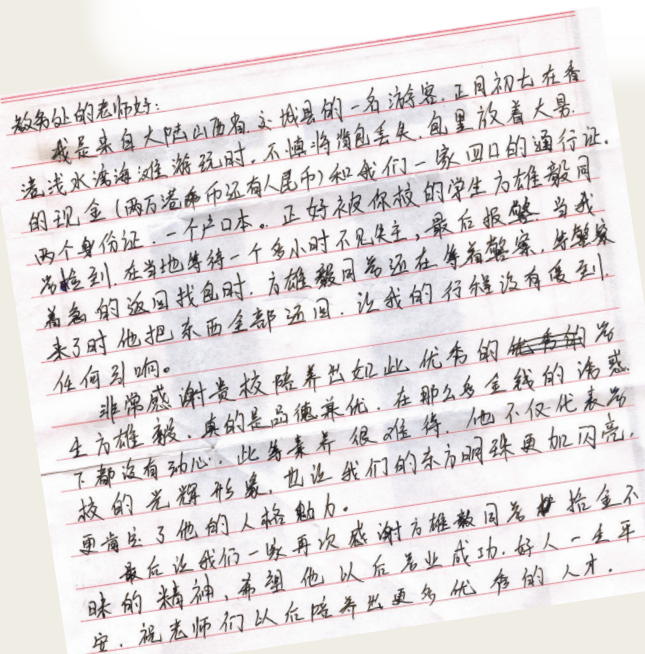 教务处的老师好:
我是来自大陆山西省交城县的一名游客.正月初七在香
港浅水湾海滩游玩时.不慎将背包丢失.包里放着大量
的现金(两万港币还有人民币)和我们一家四口的通行证.
两个身份证.一个户口本。正好被你校的学生方雄毅同
学捡到.在当地等待一个多小时不见失主,最后报警.当我
着急的返回找包时.方雄毅同学还在等着警察,等警察
来了时他把东西全部还回.让我的行程没有受到
任何影响。
非常感谢贵校陪养出如此优秀的学
生方雄毅.真的是品德兼优.在那么多金钱的诱惑
下都没有动心.此等素养很难得.他不仅代表学
校的光辉形象,也让我们的东方明珠更加闪亮.
更肯定了他的人格魅力。
最后让我们一家再次感谢方雄毅同学拾金不
昧的精神,希望他以后学业成功.好人一生平
安.祝老师们以后陪养出更多优秀的人才.